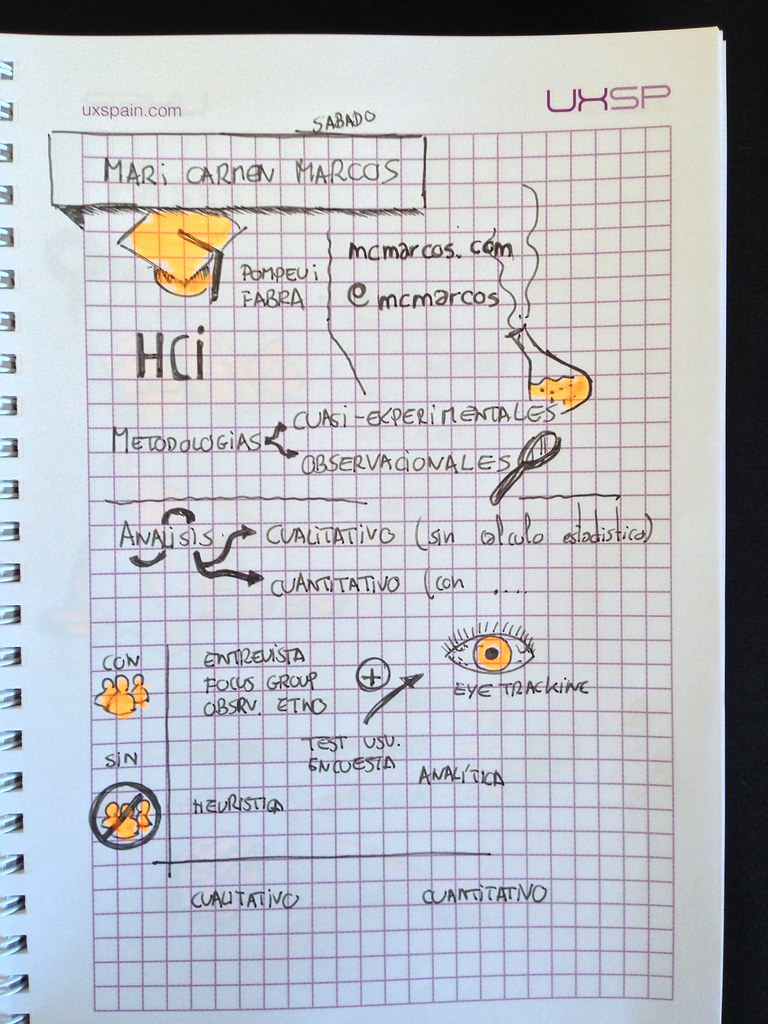 uxspain.com
UXSP
SABADO
MARi CARMEN MARCOS
POMPEU i
FABRA
mcmarcos.com
@mcmarcos
HCi
METODOLOGIAS
CUASI-EXPERIMENTALES
OBSERVACIONALES
ANALISIS
CUALITATIVO (sin calculo estadistico)
CUANTITATIVO (con ....
CON
ENTREVISTA
FOCUS GROUP
OBSRV. ETNO
+
EYE TRACKING
TEST USU.
ENCUESTA
ANALÍTICA
SiN
HEURISTICA
CUALITATIVO
CUANTITATIVO